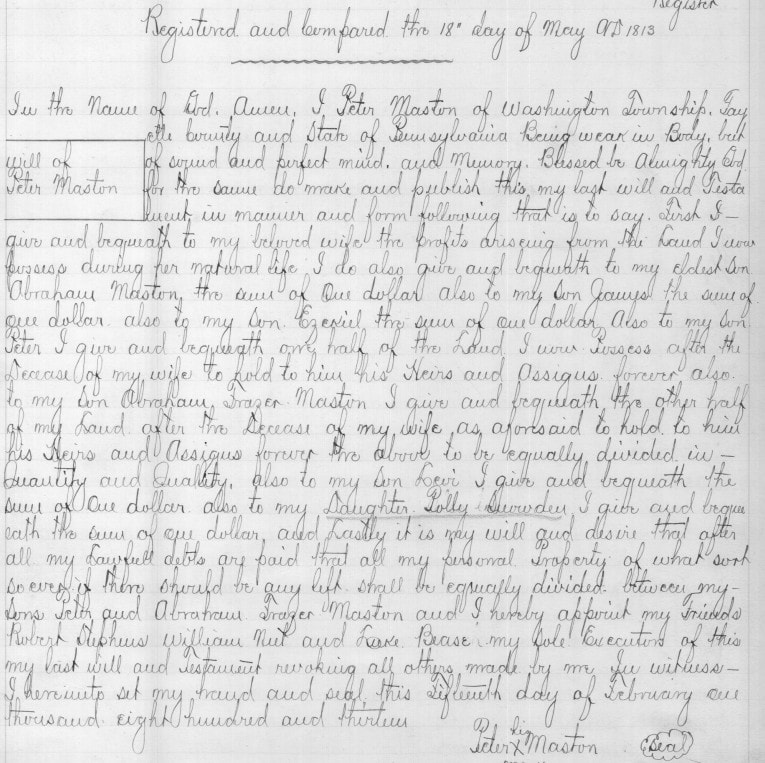 Register
Registered and Compared the 18" day of May AD 1813
In the Name of God. Amen, I Peter Maston of Washington Township. Fay
ette County and State of Pennsylvania Being weak in Body, but
will of
of sound and perfect mind, and Memory. Blessed be Almighty God
Peter Maston
for the same do make and publish this, my last will and Testa
ment, in manner and form following that is to say. First I—
give and bequeath to my beloved wife the profits ariseing from the Land I now
possess during her natural life, I do also give and bequeath to my eldest son
Abraham Maston, the sum of One dollar also to my Son James the sum of
one dollar. also to my son. Ezekiel, the sum of one dollar, Also to my son.
Peter I give and bequeath one half of the Land I now Possess after the
Decease of my wife to hold to him his Heirs and Assigns forever also.
to my son Abraham, Frazer Maston I give and bequeath the other half
of my Land after the Decease of my wife, as, aforesaid to hold to him
his Heirs and Assigns forever the above to be equally divided in—
Quantity and Quality. also to my son Levi I give and bequeath the
sum of One dollar also to my Daughter. Polly I give and beque
eath the sum of one dollar, and Lastly it is my will and desire that after
all my Lawfull debts are paid that all my personal Property of what sort
so ever, if there should be any left shall be equally divided between my—
Sons Peter and Abraham Frazer Maston and I hereby appoint my Friends
Robert Stephens William and my Sole Executors of this
my last will and Testament revoking all others, made by me In witness—
I hereunto set my hand and seal this Fifteenth day of February one
thousand eight hundred and thirteen
his
Peter X Maston Seal